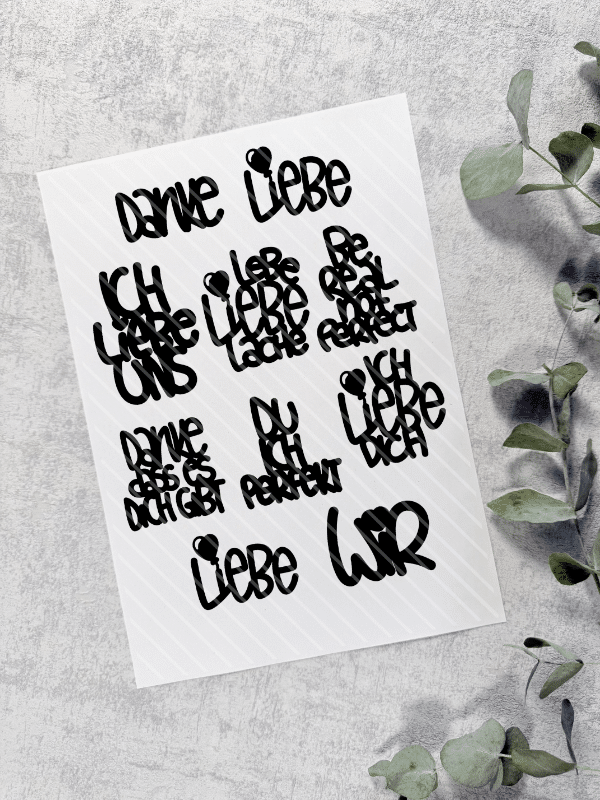 DaNKE
LiEBE
ICH
LiEBE
UNS
LeBe
LiEBE
Lache
Be
REaL
NOT
PERFECT
DaNKE
dass es
DiCH GiBT
DU
ICH
PERFEKT
ICH
LiEBE
DICH
LiEBE
WiR